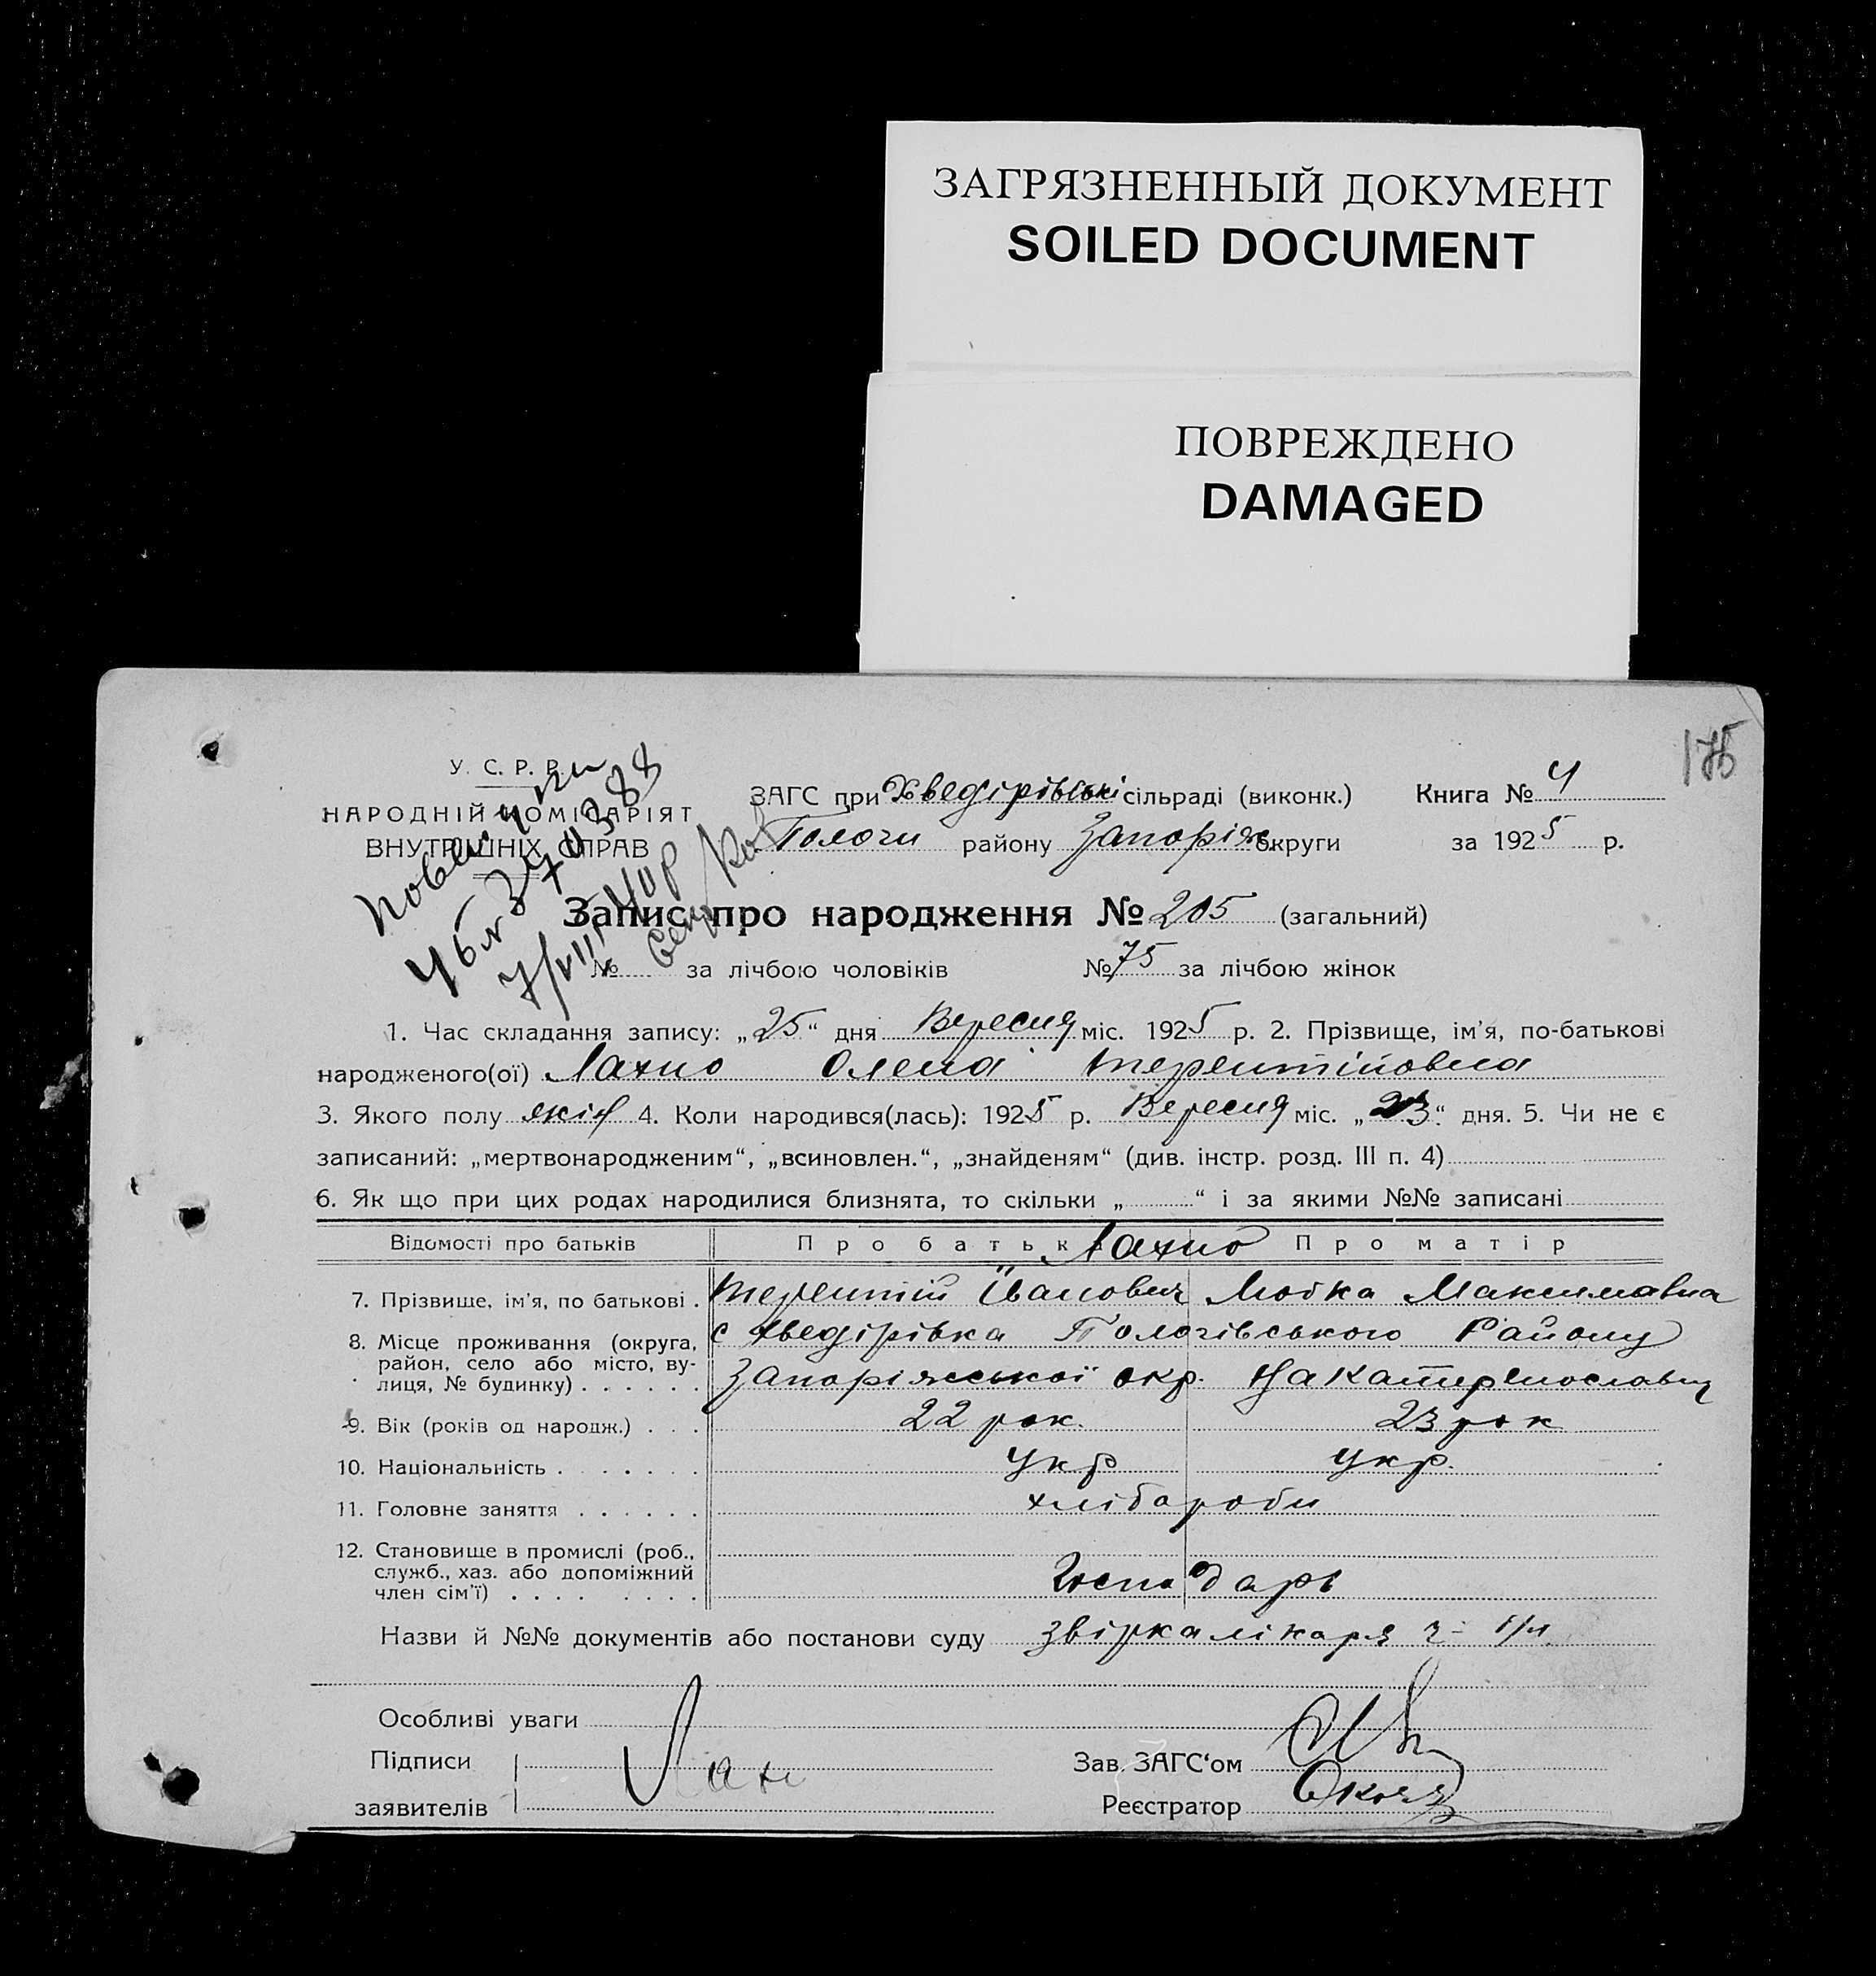 ЗАГРЯЗНЕННЫЙ ДОКУМЕНТ
SOILED DOCUMENT
ПОВРЕЖДЕНО
DAMAGED
175
У. С. Р. Р.
НАРОДНІЙ КОМІСАРІЯТ
ВНУТРІШНІХ СПРАВ
ЗАГС при Хведірівські сільраді (виконк.) Книга № 4
Пологи району Запоріж округи за 1925 р.
Запис про народження № 205 (загальний)
№ за лічбою чоловіків № 75 за лічбою жінок
1. Час складання запису: „25“ дня Вересня міс. 1925 р. 2. Прізвище, ім’я, по-батькові
народженого(ої) Лахно Олена Терентійовна
3. Якого полу жін 4. Коли народився(лась): 1925 р. Вересня міс. „23“ дня. 5. Чи не є
записаний: „мертвонародженим“, „всиновлен.“, „знайденям“ (див. інстр. розд. III п. 4)
6. Як що при цих родах народилися близнята, то скільки „ “ і за якими №№ записані
Відомості про батьків Про батьк Лахно Про матір
7. Прізвище, ім’я, по батькові . Терентій Іванович Мотка Максимавна
8. Місце проживання (округа, район, село або місто, вулиця, № будинку) с Хведірівка Пологівського Району
Запоріжської окр. На Катиринославщ
9. Вік (років од народж.) . . . 22 рок. 23 рок
10. Національність . . . . . . . Укр Укр.
11. Головне заняття . . . . . . хлібароби
12. Становище в промислі (роб., служб., хаз. або допоміжний член сім’ї) . . . . . . . . Господарь
Назви й №№ документів або постанови суду звірка лікаря
Особливі уваги
Підписи Лахн Зав. ЗАГС‘ом
заявителів Реєстратор